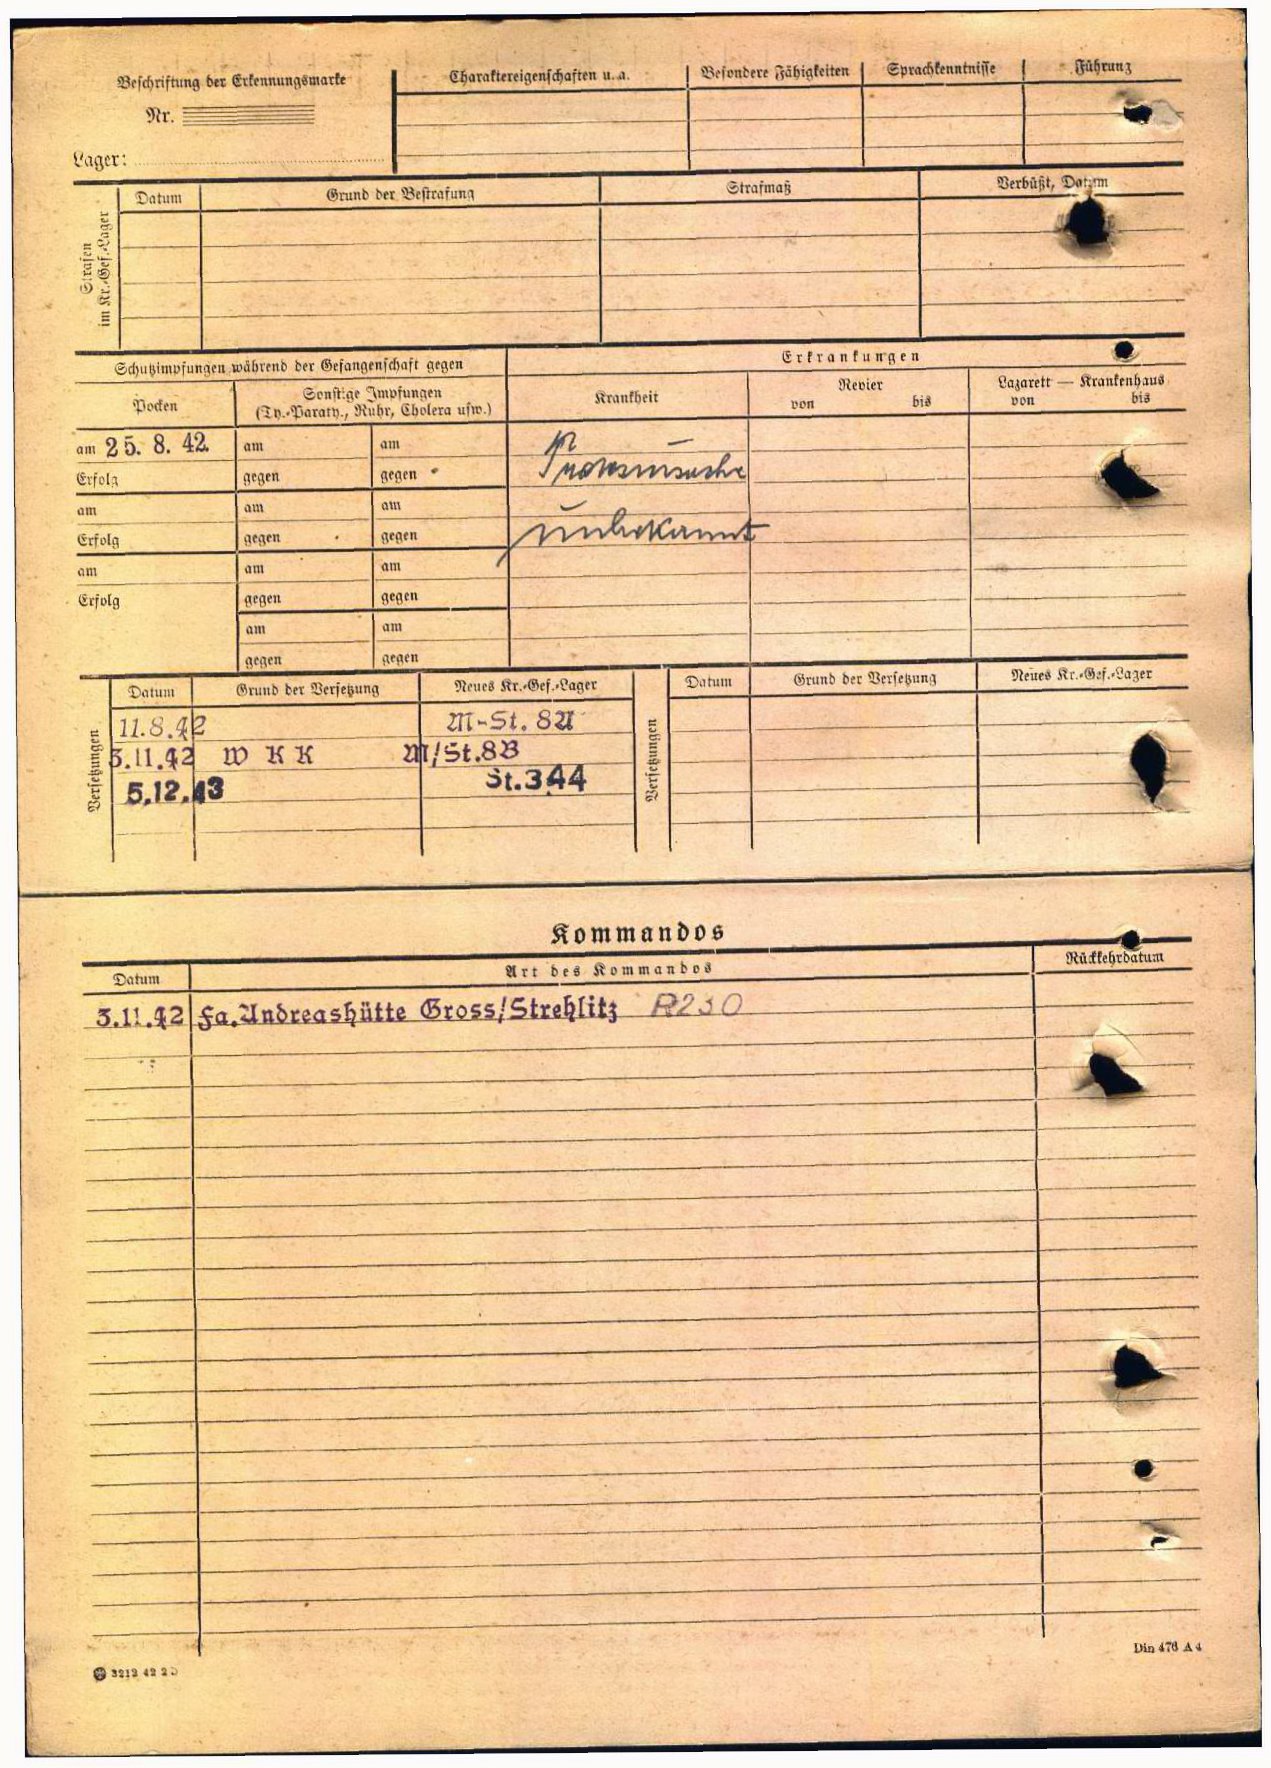 Beschriftung der Erkennungsmarke
Nr.
Lager:
Charaktereigenschaften u. a.
Besondere Fähigkeiten
Sprachkenntnisse
Führung
Strafen im Kr.-Gef.-Lager
Datum
Grund der Bestrafung
Strafmaß
Verbüßt, Datum
Schutzimpfungen während der Gefangenschaft gegen
Erkrankungen
Pocken
Sonstige Impfungen
(Ty.-Paraty., Ruhr, Cholera usw.)
Krankheit
Revier
von bis
Lazarett — Krankenhaus
von bis
am 25. 8. 42. am am
Erfolg gegen gegen
am am am
Erfolg gegen gegen
unbekannt
am am am
Erfolg gegen gegen
am am
gegen gegen
Versetzungen
Datum Grund der Versetzung Neues Kr.-Gef.-Lager
11.8.42 M-St. 8A
3.11.42 W K K M/St.8B
5.12.43 St.344
Versetzungen
Datum Grund der Versetzung Neues Kr.-Gef.-Lager
Kommandos
Datum Art des Kommandos Rückkehrdatum
3.11.42 Fa.Andreashütte Gross/Strehlitz R230
3212 42 2D
Din 476 A 4